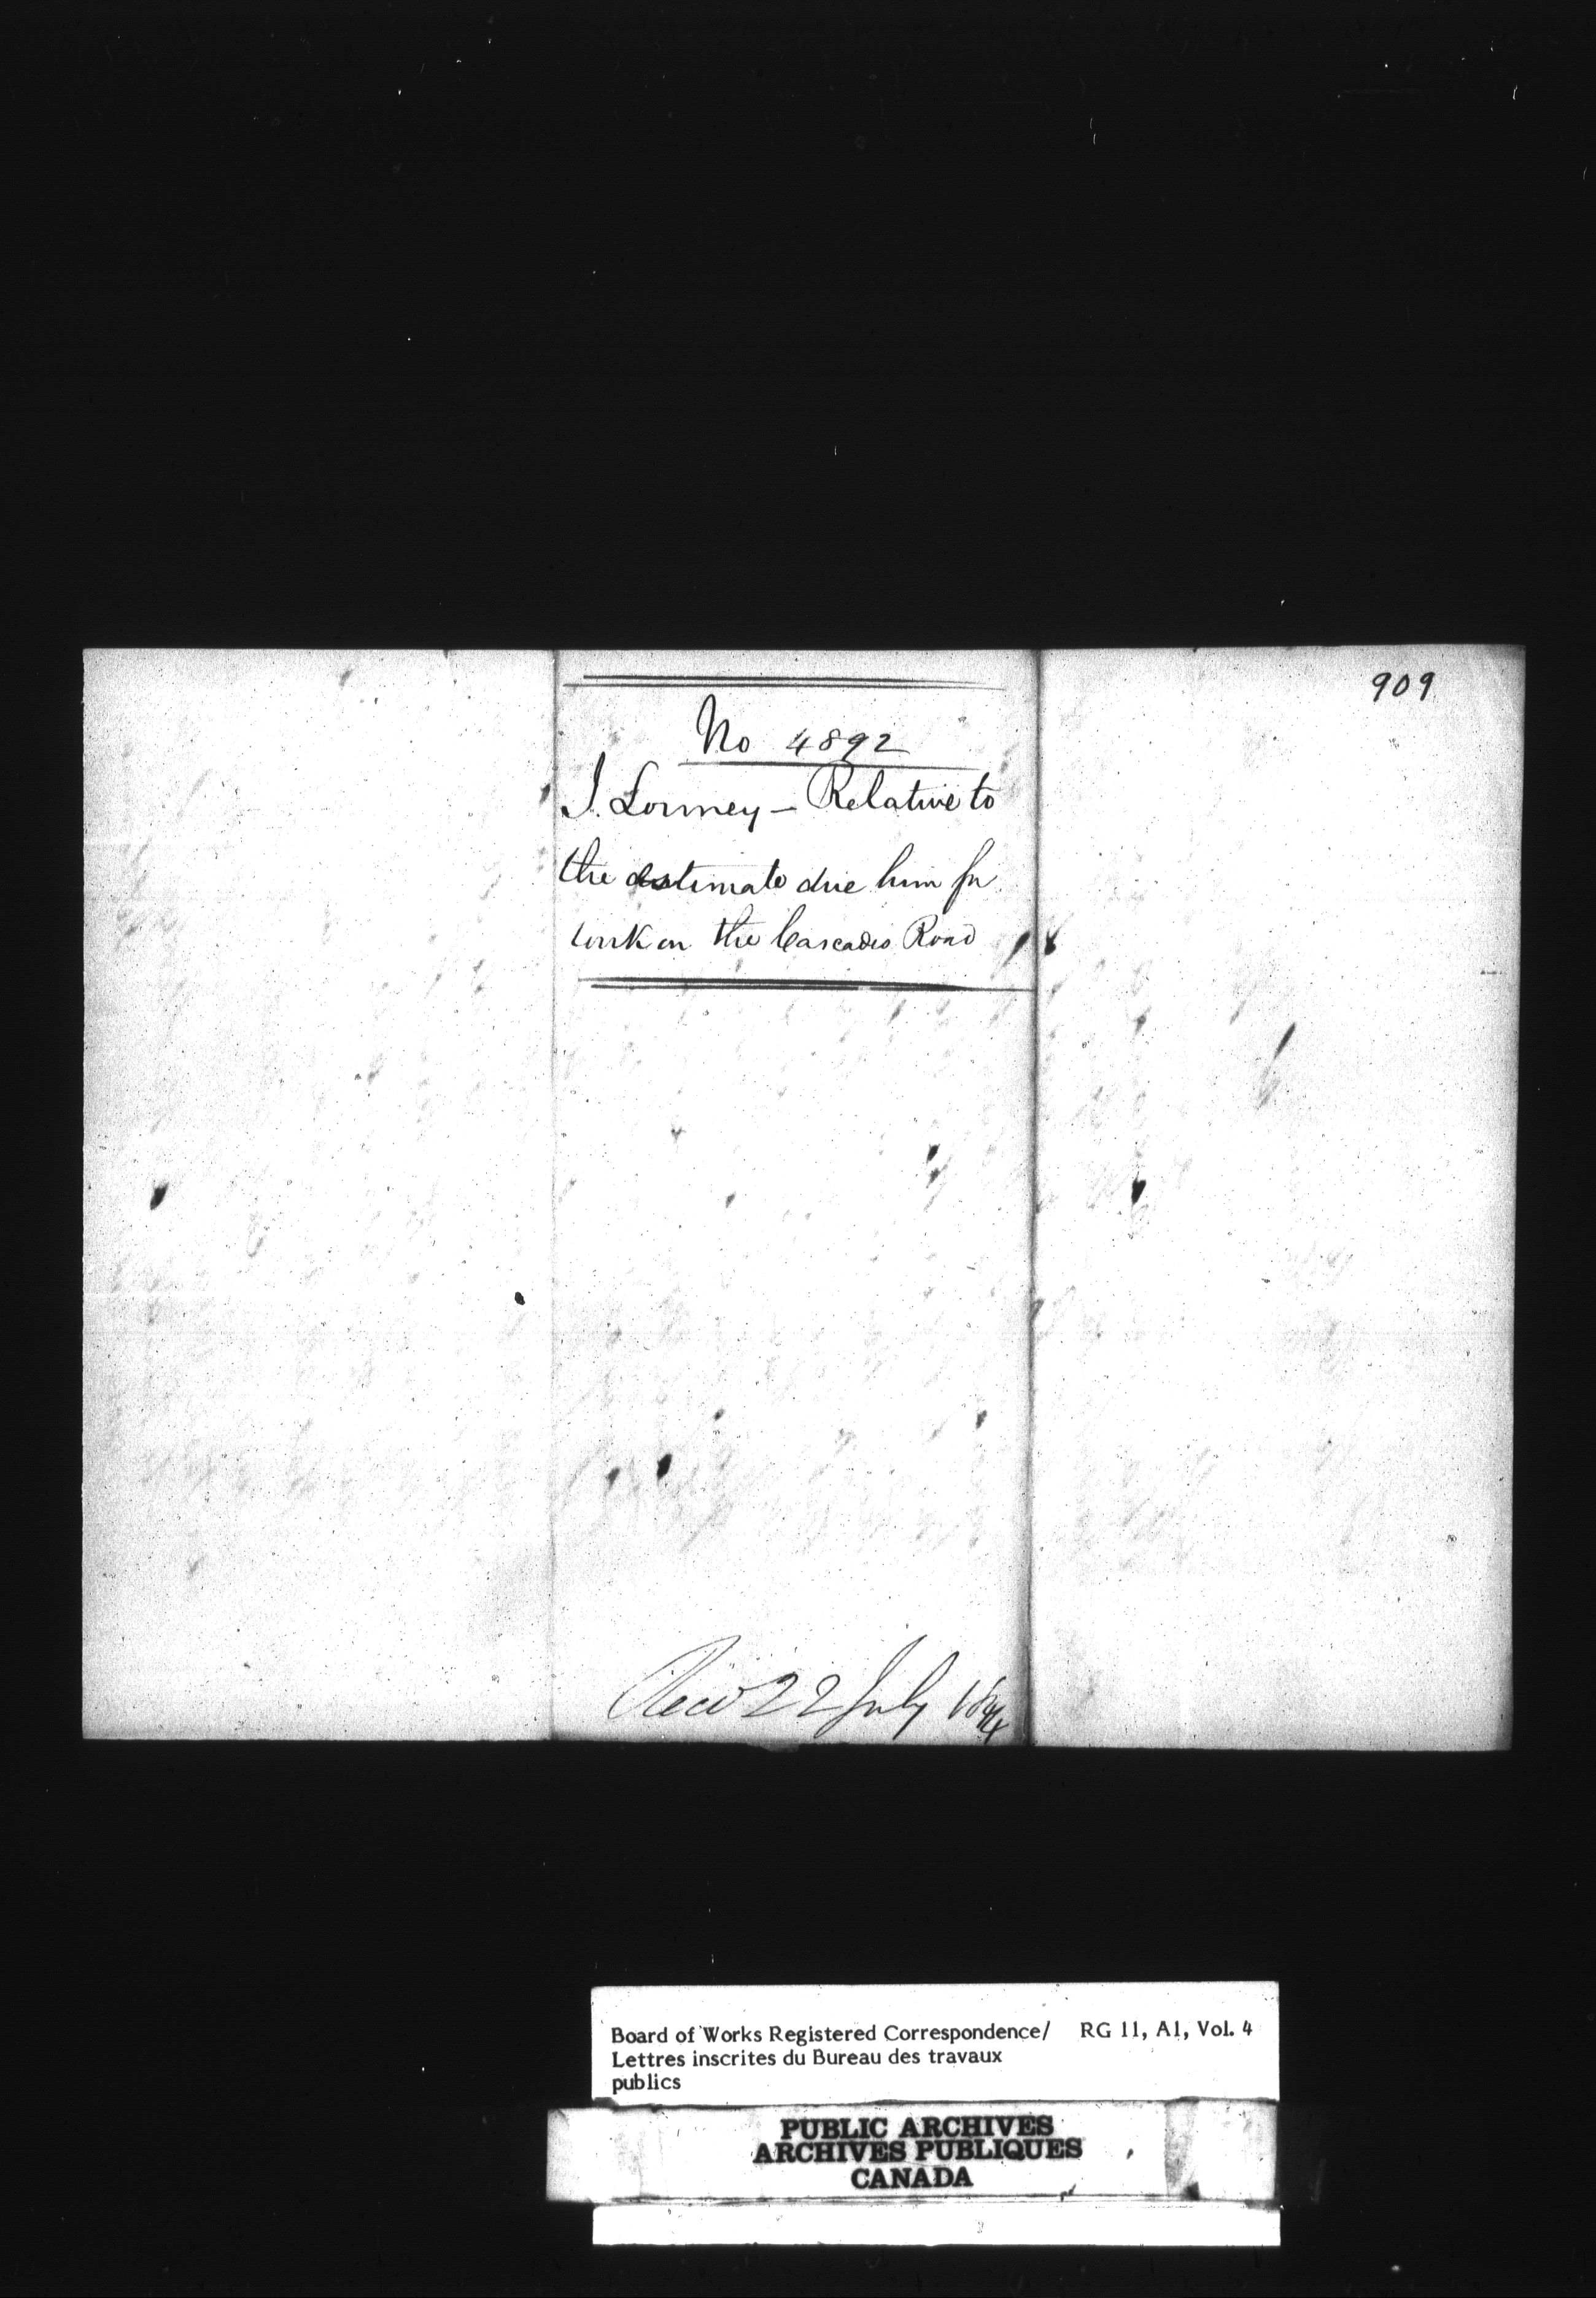 909
No 4892
J. Lormey – Relative to
the estimate due him for
work on the Cascades Road
Recd 22 July 1844
Board of Works Registered Correspondence/ RG 11, A1, Vol. 4
Lettres inscrites du Bureau des travaux
publics
PUBLIC ARCHIVES
ARCHIVES PUBLIQUES
CANADA